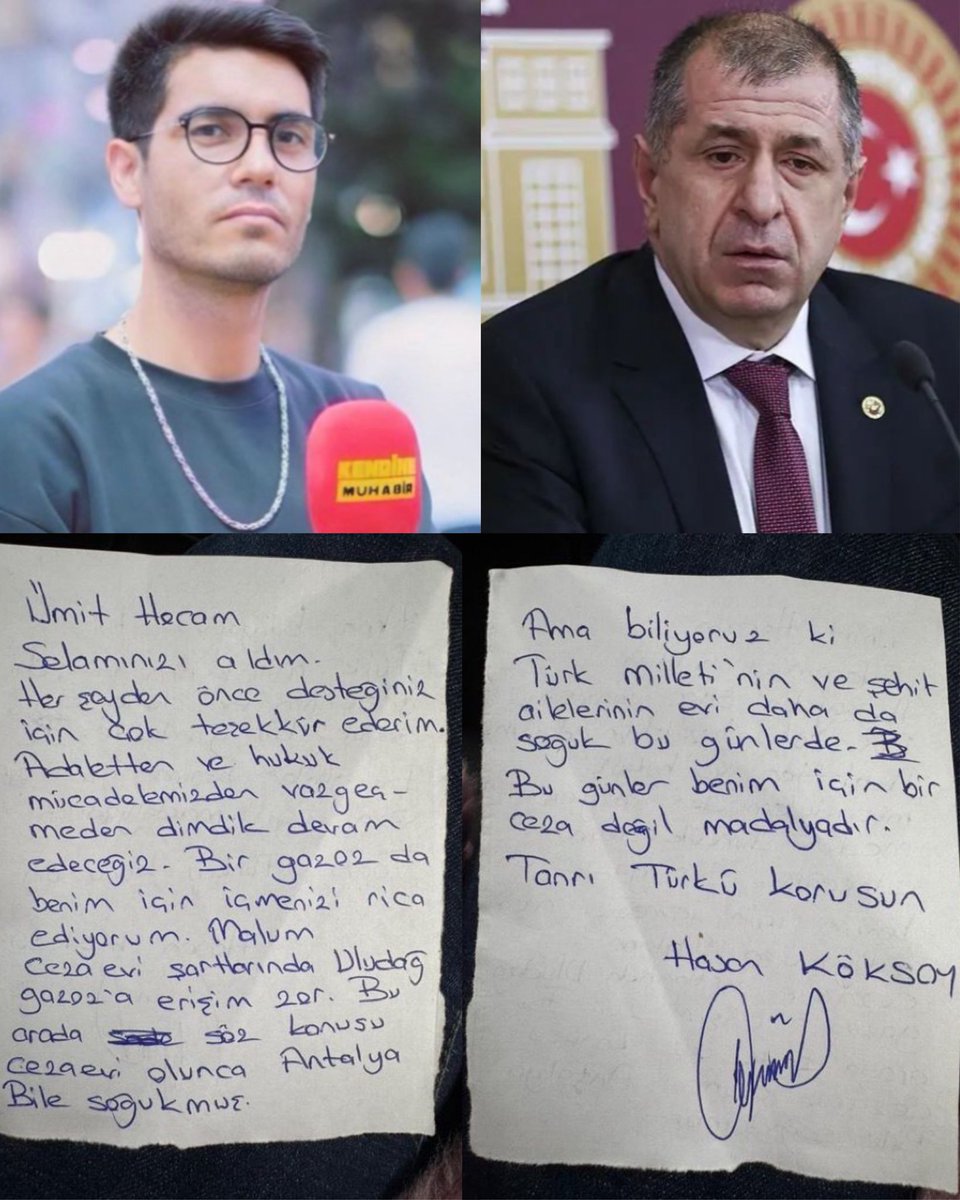 KENDİNE
MUHABİR
Ümit Hocam
Selamınızı aldım.
Her şeyden önce desteğiniz
için çok teşekkür ederim.
Adaletten ve hukuk
mücadelemizden vazgeç-
meden dimdik devam
edeceğiz. Bir gazoz da
benim için içmenizi rica
ediyorum. Malum
Cezaevi şartlarında Uludağ
gazoz'a erişim zor. Bu
arada söz konusu
cezaevi olunca Antalya
Bile soğukmuş.
Ama biliyoruz ki
Türk milleti'nin ve şehit
ailelerinin evi daha da
soğuk bu günlerde.
Bu günler benim için bir
ceza değil madalyadır.
Tanrı Türkü korusun
Hasan KÖKSOY